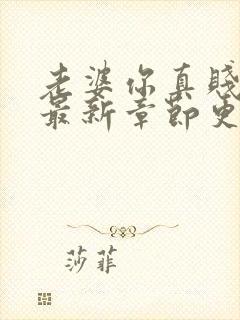 老婆你真贱
最新章节更
莎菲